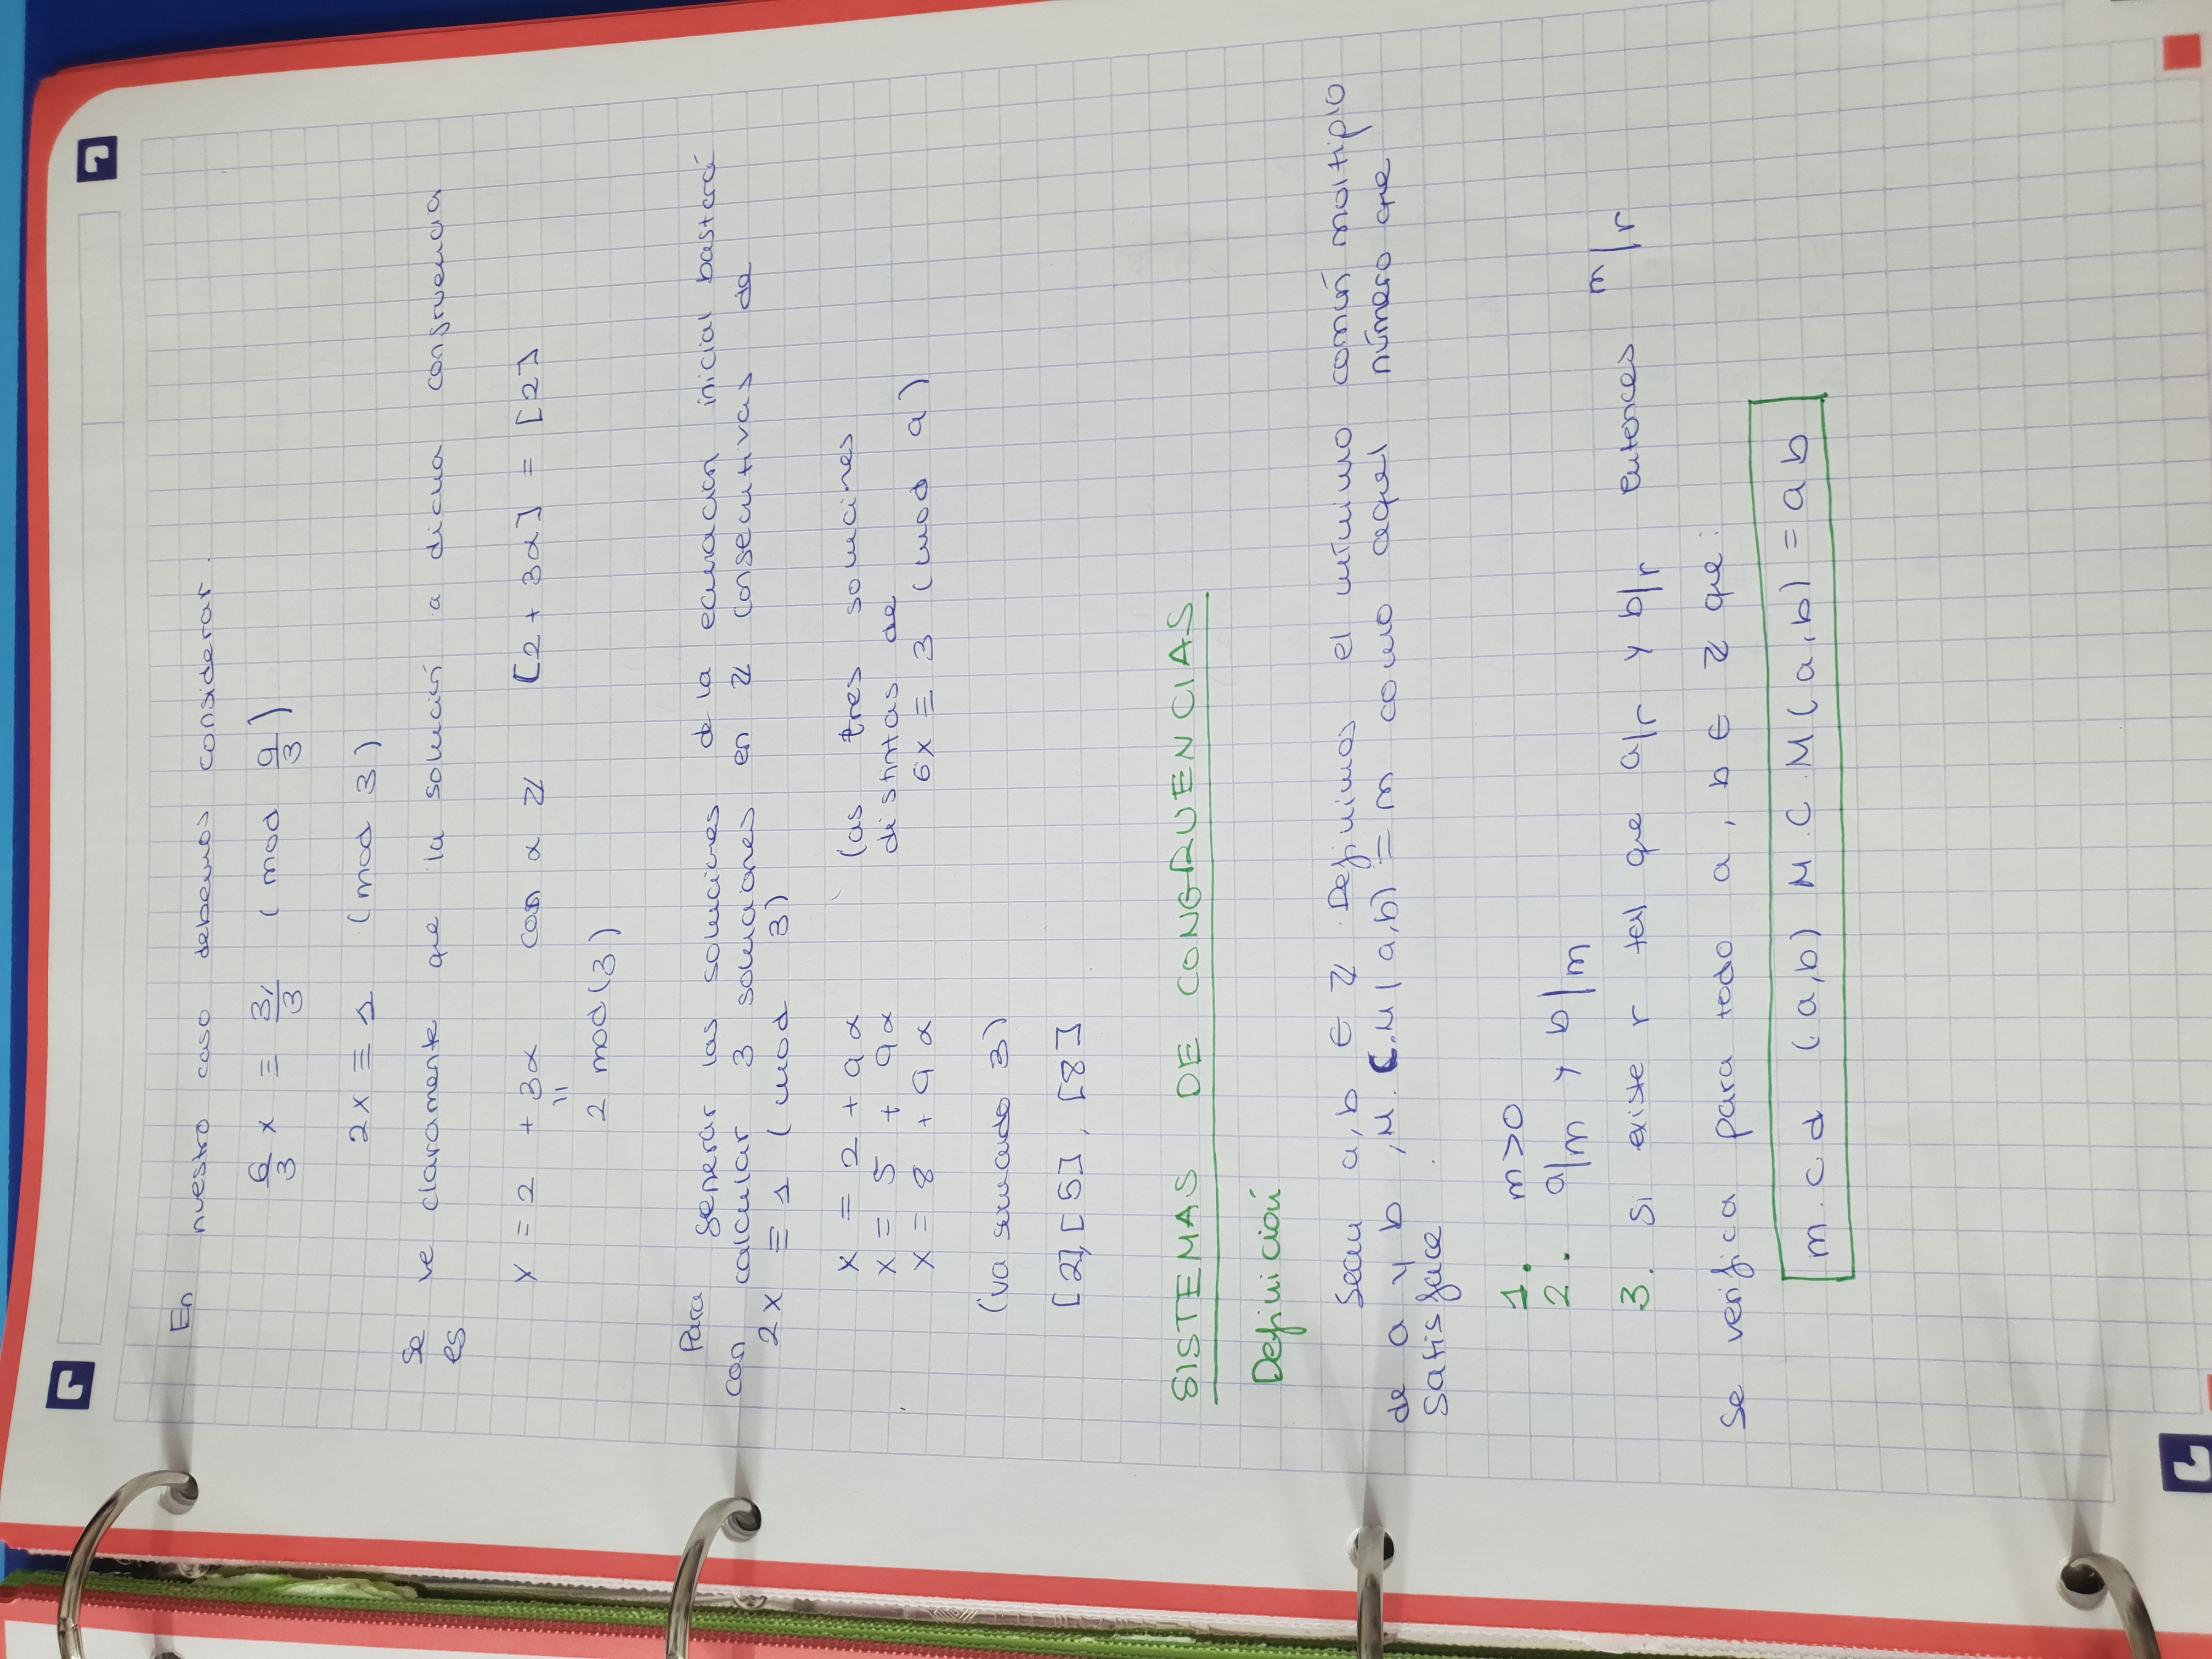 En nuestro caso debemos considerar.
6/3 x ≡ 3/3 (mod 9/3)
2x ≡ 1 (mod 3)
Se ve claramente que la solución a dicha congruencia
es
x = 2 + 3α con α ℤ [2 + 3α] = [2]
2 mod(3)
Para generar las soluciones de la ecuación inicial bastará
con calcular 3 soluciones en ℤ consecutivas de
2x ≡ 1 (mod 3)
x = 2 + 9α (as tres soluciones
x = 5 + 9α distintas de
x = 8 + 9α 6x ≡ 3 (mod 9)
(va sumando 3)
[2], [5], [8]
SISTEMAS DE CONGRUENCIAS
Definición
Sean a, b ∈ ℤ. Definimos el mínimo común moltiplo
de a y b, M.C.M(a,b) = m como aquel número que
satisface
1. m>0
2. a|m y b|m
3. Si existe r tal que a|r y b|r entonces m|r
Se verifica para todo a, b ∈ ℤ que:
m.c.d (a,b) M.C.M(a,b) = ab